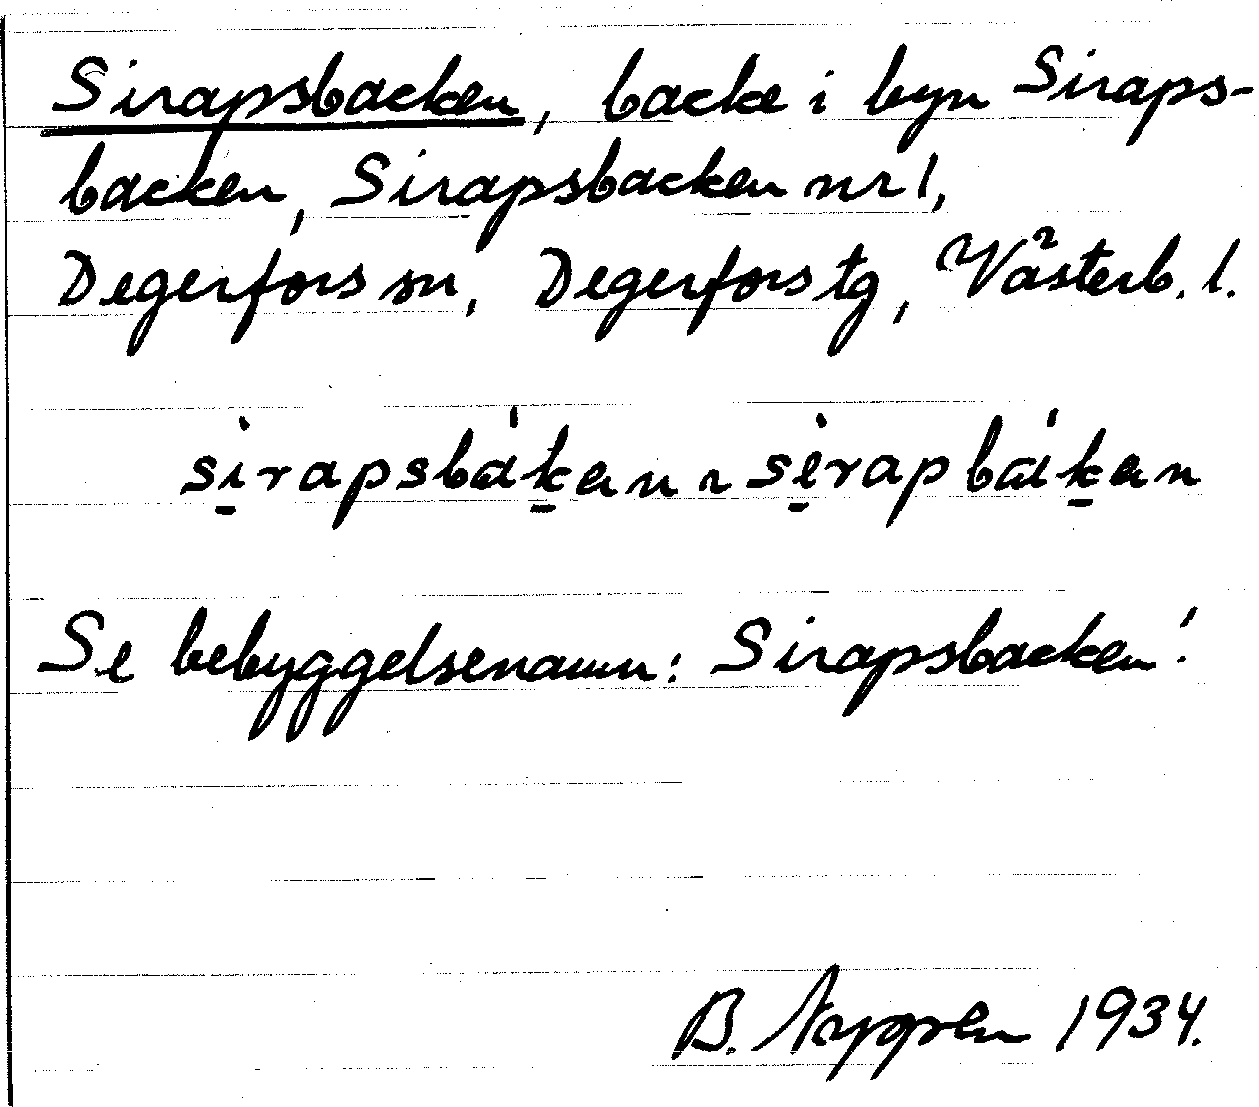 Sirapsbacken, backe i byn Siraps-
backen, Sirapsbacken nr 1,
Degerfors sn, Degerfors tg, Västerb. l.
sirapsbákɛn ~ serapbákɛn
Se bebyggelsenamn: Sirapsbacken!
B. 1934.